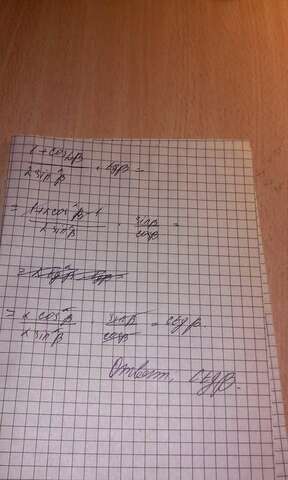 1 + cos2β / 2 sin²β · tgβ =
= 1+2cos²β - 1 / 2 sin²β · sinβ / cosβ =
= 2 cos²β / 2 sin²β · sinβ / cosβ = ctgβ.
Ответ, ctgβ.